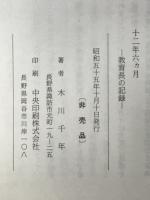 十二年六ヵ月
―教育長の記録―
昭和五十五年十月十日発行
〔非売品〕
著者 木川千年
長野県諏訪市元町一九―二五
印刷 中央印刷株式会社
長野県岡谷市川岸一〇八